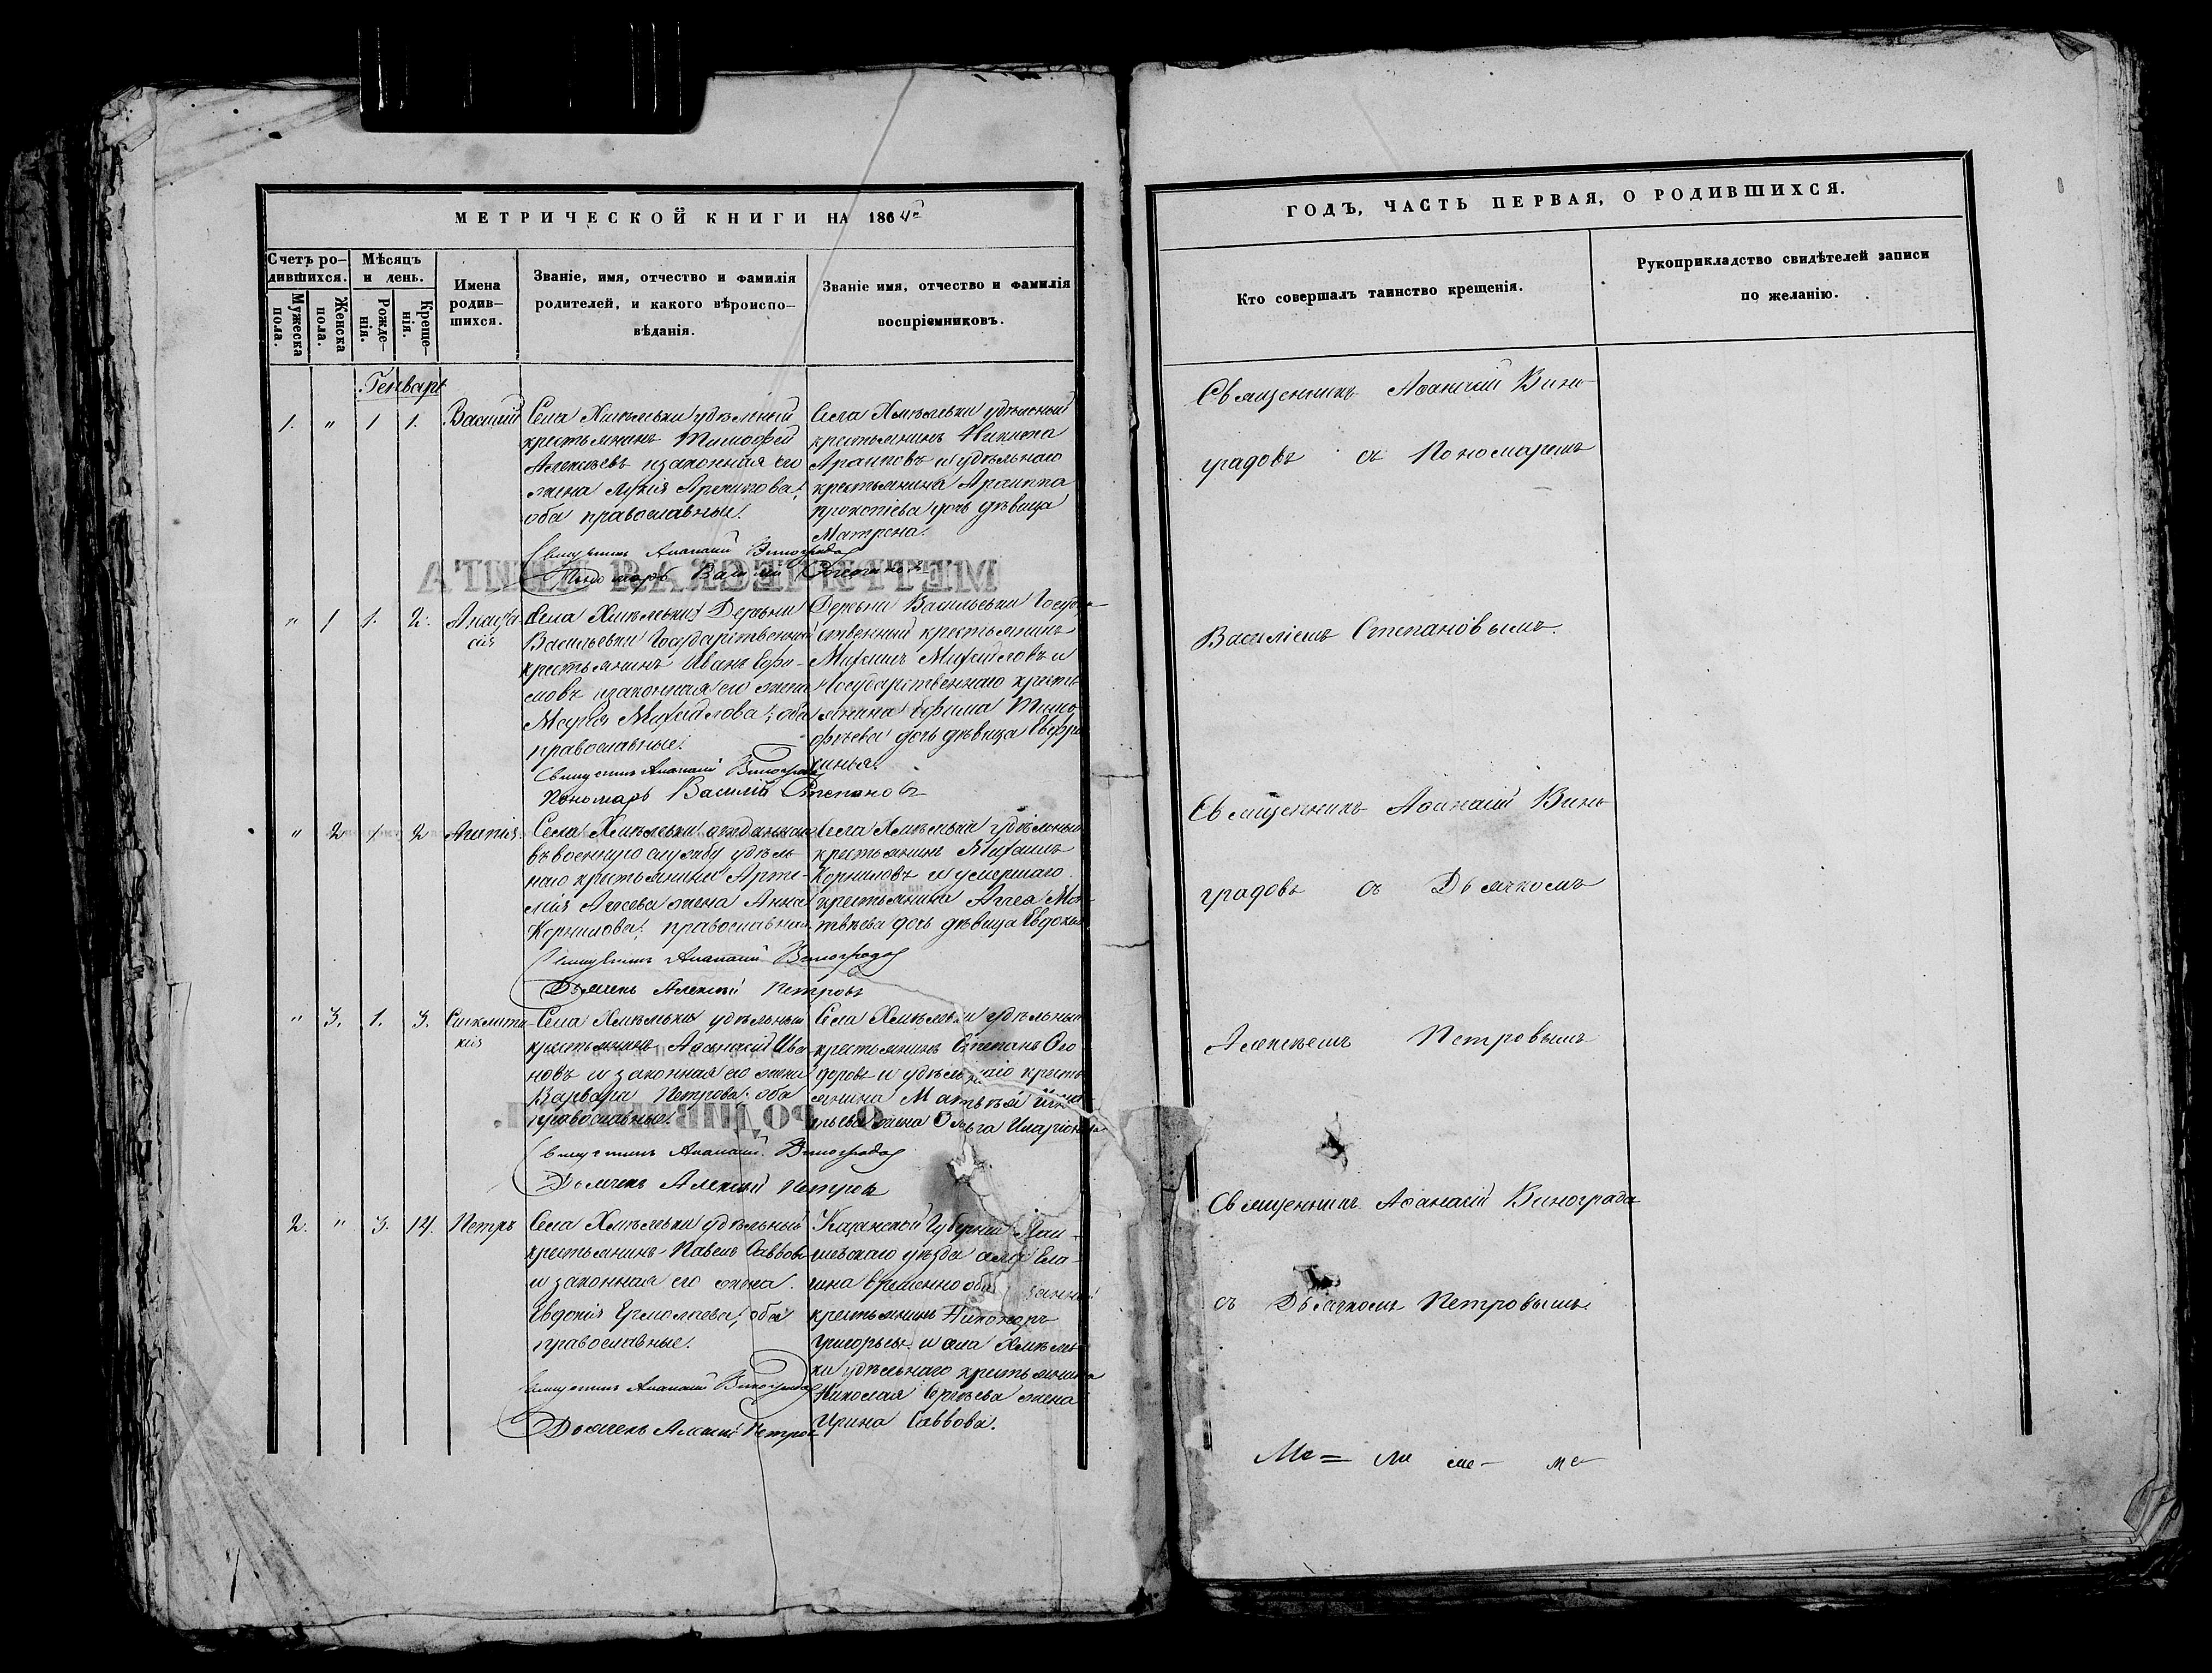 МЕТРИЧЕСКОЙ КНИГИ НА 1864й
Счетъ ро-
дившихся.
Мѣсяцъ
и день.
Мужеска
пола.
Женска
пола.
Рожде-
нія.
Креще-
нія.
Имена
родив-
шихся.
Званіе, имя, отчество и фамилія
родителей, и какого вѣроиспо-
вѣданія.
Званіе имя, отчество и фамилія
воспріемниковъ.
Генварь
1. " 1 1. Василій
Села Хмѣлевки удѣльный
крестьянинъ Тимофей
Алексѣевъ и законная его
жена Лукія Архипова;
оба православные.
Священникъ Аѳанасій Виноградов
Пономарь Василій Степановъ
Села Хмѣлевки удѣльный
крестьянинъ Никита
Архиповъ и удѣльнаго
крестьянина Архиппа
Прокопіева дочь дѣвица
Матрена.
" 1 1. 2. Анаста-
сія
Села Хмѣлевки Деревни
Васильевки Государственный
крестьянинъ Иванъ Ефи-
мовъ и законная его жена
Марія Михайлова; оба
православные.
Священникъ Аѳанасій Виноградов
Пономарь Василій Степановъ
Деревни Васильевки Государ-
ственный крестьянинъ
Михаилъ Михайловъ и
Государственнаго кресть-
янина Ефима Тимо-
фѣева дочь дѣвица Евфро-
синья.
" 2 1 2 Агапія
Села Хмѣлевки отданнаго
въ военную службу удѣль-
наго крестьянина Арте-
мія Аггеева жена Анна
Корнилова; православная.
Священникъ Аѳанасій Виноградов
Дьячекъ Алексѣй Петровъ
Села Хмѣлевки удѣльный
крестьянинъ Михаилъ
Корниловъ и умершаго
крестьянина Аггея Мат-
твѣева дочь дѣвица Евдокія
" 3. 1. 3. Синклити-
кія
Села Хмѣлевки удѣльный
крестьянинъ Аѳанасій Ива-
новъ и законная его жена
Варвара Петрова; оба
православные.
Священникъ Аѳанасій Виноградов
Дьячекъ Алексѣй Петровъ
Села Хмѣлевки удѣльный
крестьянинъ Степанъ Ѳео-
доровъ и удѣльнаго кресть-
янина Матвѣя
жена Ольга Иларіонова
2. " 3. 14. Петръ
Села Хмѣлевки удѣльный
крестьянинъ Павелъ Саввовъ
и законная его жена
Евдокія Ермолаева; оба
православные.
Священникъ Аѳанасій Виноградов
Дьячекъ Алексѣй Петровъ
Казанской Губерніи Лаи-
шевскаго уѣзда села Ела-
гина временно обязанный
крестьянинъ Никаноръ
Григорьевъ и села Хмѣлев-
ки удѣльнаго крестьянина
Николая Сергѣева жена
Ирина Саввова.
ГОДЪ, ЧАСТЬ ПЕРВАЯ, О РОДИВШИХСЯ.
Кто совершалъ таинство крещенія.
Рукоприкладство свидѣтелей записи
по желанію.
Священникъ Аѳанасій Вино-
градовъ съ Пономаремъ
Василіемъ Степановымъ.
Священникъ Аѳанасій Вино-
градовъ съ Дьячкомъ
Алексѣемъ Петровымъ
Священникъ Аѳанасій Виноградов
съ Дьячкомъ Петровымъ.